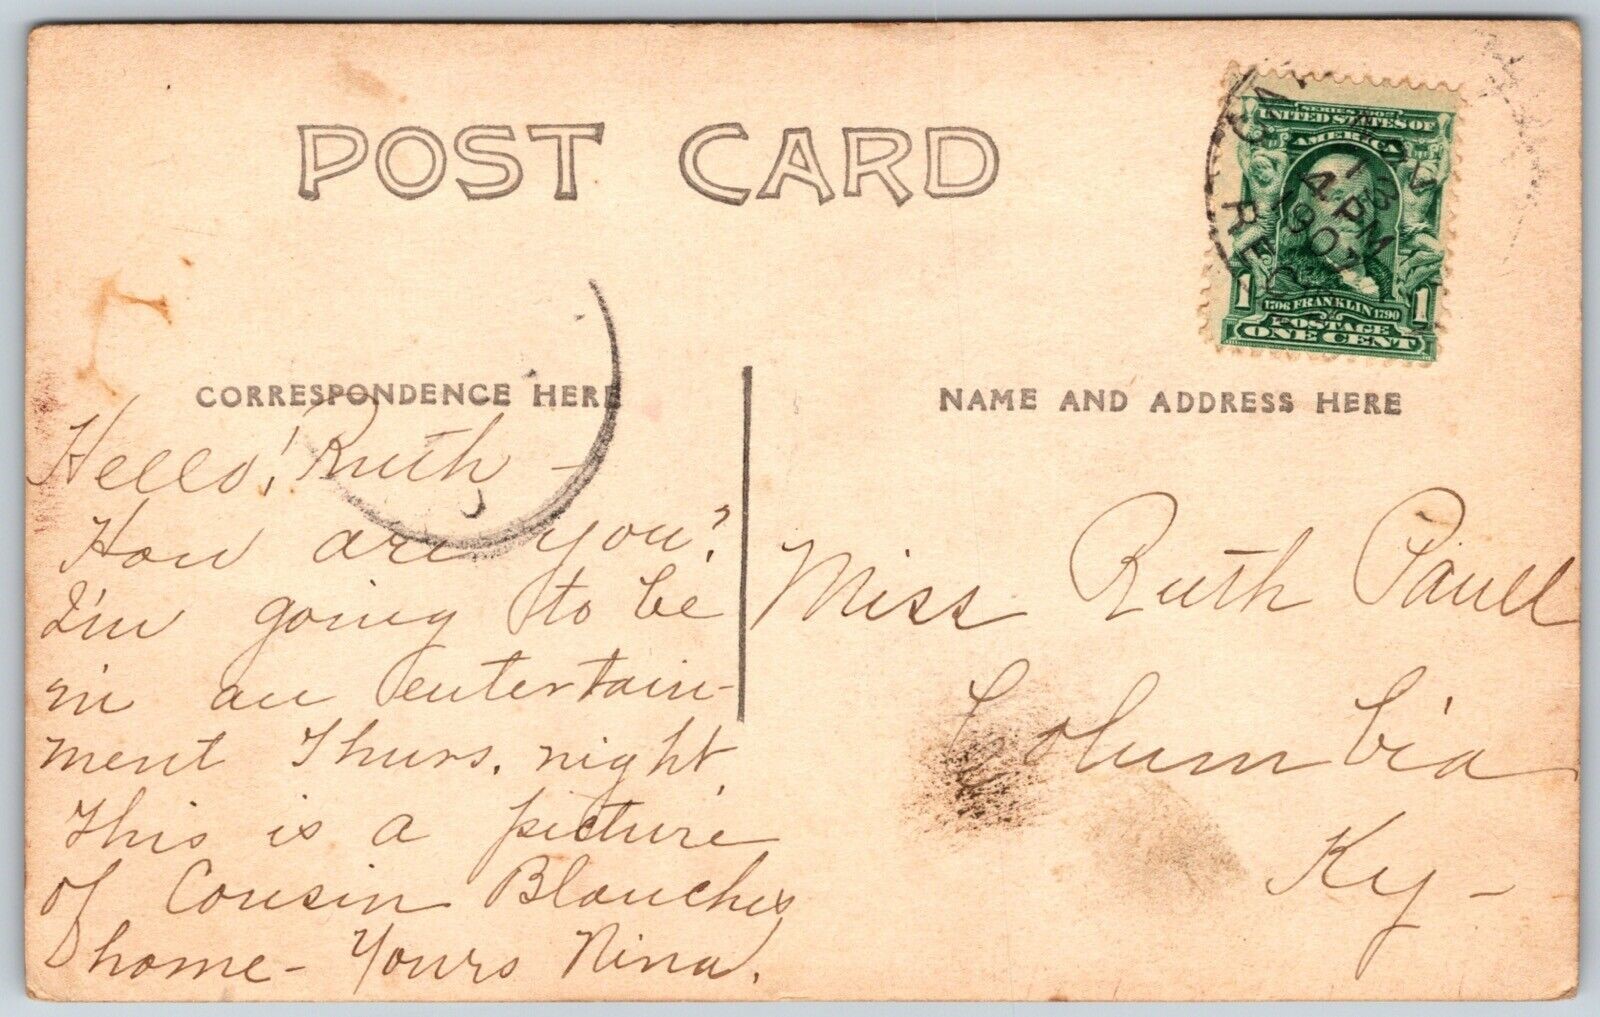 POST CARD
SERIES 1902
UNITED STATES OF
AMERICA
13
4 PM
1907
REC'D
1 1706 FRANKLIN 1790 1
POSTAGE
ONE CENT
CORRESPONDENCE HERE
Hello! Ruth –
How are you?
I'm going to be
in an entertain-
ment Thurs. night.
This is a picture
of Cousin Blanche's
home – Yours Nina.
NAME AND ADDRESS HERE
Miss Ruth Paull
Columbia
Ky –